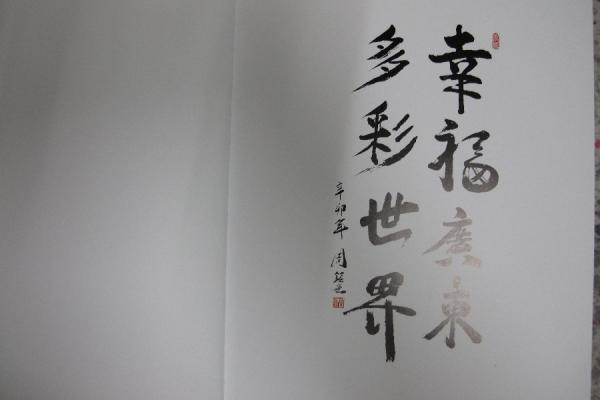 幸福廣東
多彩世界
辛卯年 周